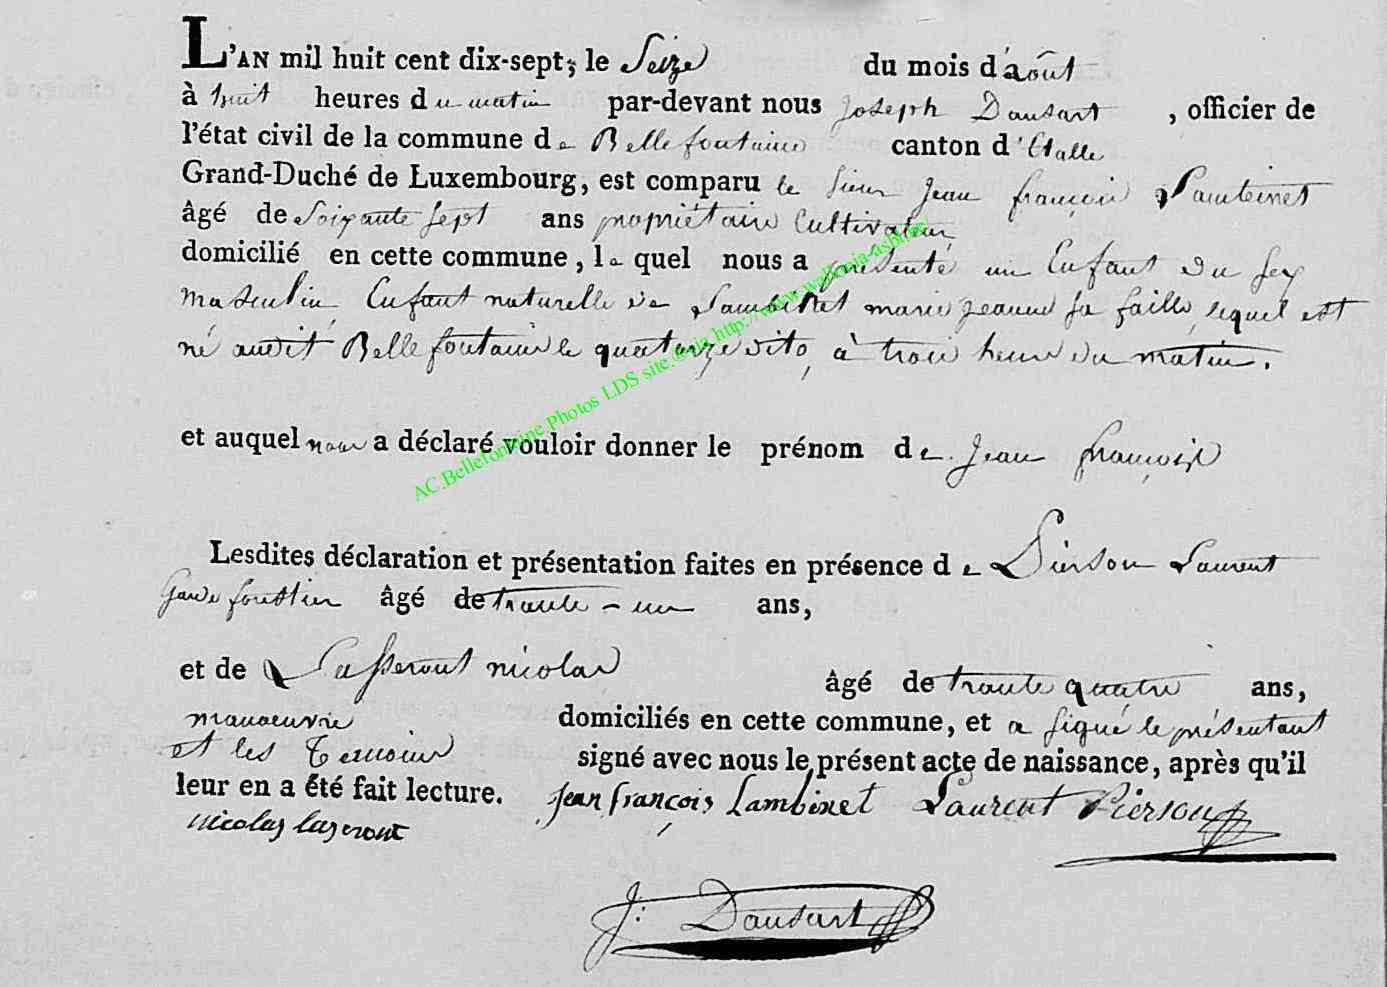 L'AN mil huit cent dix-sept, le Seize du mois d'août
à huit heures du matin par-devant nous Joseph Dausart, officier de
l'état civil de la commune de Bellefontaine canton d'Etalle
Grand-Duché de Luxembourg, est comparu le Sieur Jean françois Lambinet
âgé de Soixante Sept ans propriétaire Cultivateur
domicilié en cette commune, le quel nous a présenté un Enfant du Sex
masculin, Enfant naturelle de Lambinet marie jeanne sa faille, lequel est
né audit Bellefontaine le quatorze dito, à trois heure du matin.
et auquel nous a déclaré vouloir donner le prénom de Jean françois
Lesdites déclaration et présentation faites en présence de Pierson Laurent
Garde forestier âgé de trante-un ans,
et de Lasseront nicolas âgé de trante quatre ans,
manoeuvre domiciliés en cette commune, et a signé le présentant
et les Temoins signé avec nous le présent acte de naissance, après qu'il
leur en a été fait lecture. jean françois Lambinet Laurent Pierson
nicolas laseront
J: Dausart
AC.Bellefontaine Photos LDS site.geneania http://www.wallonia-asbl.be/